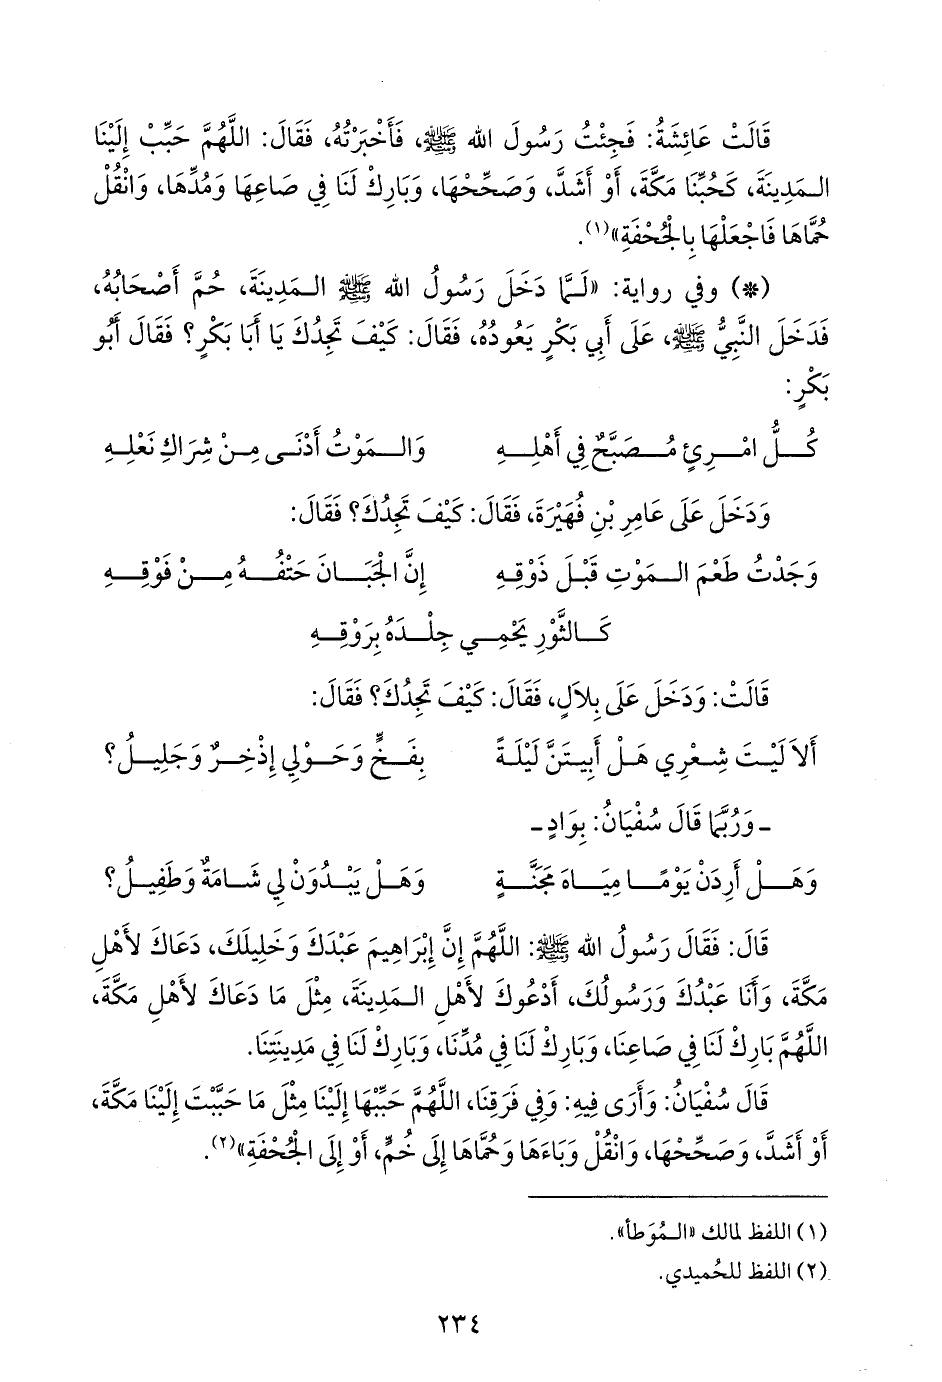 قَالَتْ عَائِشَةُ: فَجِئْتُ رَسُولَ الله ﷺ، فَأَخْبَرْتُهُ، فَقَالَ: اللَّهُمَّ حَبِّبْ إِلَيْنَا
الـمَدِينَةَ، كَحُبِّنَا مَكَّةَ، أَوْ أَشَدَّ، وَصَحِّحْهَا، وَبَارِكْ لَنَا فِي صَاعِهَا وَمُدِّهَا، وَانْقُلْ
حُمَّاهَا فَاجْعَلْهَا بِالْجُحْفَةِ»(١).
(*) وفي رواية: «لَـمَّا دَخَلَ رَسُولُ الله ﷺ الـمَدِينَةَ، حُمَّ أَصْحَابُهُ،
فَدَخَلَ النَّبِيُّ ﷺ، عَلَى أَبِي بَكْرٍ يَعُودُهُ، فَقَالَ: كَيْفَ تَجِدُكَ يَا أَبَا بَكْرٍ؟ فَقَالَ أَبُو
بَكْرٍ:
كُـلُّ امْـرِئٍ مُـصَبَّحٌ فِي أَهْلِـهِ وَالـمَوْتُ أَدْنَـى مِـنْ شِرَاكِ نَعْلِـهِ
وَدَخَلَ عَلَى عَامِرِ بْنِ فُهَيْرَةَ، فَقَالَ: كَيْفَ تَجِدُكَ؟ فَقَالَ:
وَجَدْتُ طَعْمَ الـمَوْتِ قَبْلَ ذَوْقِـهِ إِنَّ الْجَبَـانَ حَتْفُـهُ مِـنْ فَوْقِـهِ
كَـالثَّوْرِ يَحْمِـي جِلْـدَهُ بِرَوْقِـهِ
قَالَتْ: وَدَخَلَ عَلَى بِلاَلٍ، فَقَالَ: كَيْفَ تَجِدُكَ؟ فَقَالَ:
أَلاَ لَيْـتَ شِـعْرِي هَـلْ أَبِيـتَنَّ لَيْلَـةً بِفَـخٍّ وَحَـوْلِي إِذْخِـرٌ وَجَلِيـلُ؟
ـ وَرُبَّمَا قَالَ سُفْيَانُ: بِوَادٍ ـ
وَهَـلْ أَرِدَنْ يَوْمًـا مِيَـاهَ مَجَنَّـةٍ وَهَـلْ يَبْـدُوَنْ لِي شَـامَةٌ وَطَفِيـلُ؟
قَالَ: فَقَالَ رَسُولُ الله ﷺ: اللَّهُمَّ إِنَّ إِبْرَاهِيمَ عَبْدَكَ وَخَلِيلَكَ، دَعَاكَ لأَهْلِ
مَكَّةَ، وَأَنَا عَبْدُكَ وَرَسُولُكَ، أَدْعُوكَ لأَهْلِ الـمَدِينَةِ، مِثْلَ مَا دَعَاكَ لأَهْلِ مَكَّةَ،
اللَّهُمَّ بَارِكْ لَنَا فِي صَاعِنَا، وَبَارِكْ لَنَا فِي مُدِّنَا، وَبَارِكْ لَنَا فِي مَدِينَتِنَا.
قَالَ سُفْيَانُ: وَأَرَى فِيهِ: وَفِي فَرَقِنَا، اللَّهُمَّ حَبِّبْهَا إِلَيْنَا مِثْلَ مَا حَبَّبْتَ إِلَيْنَا مَكَّةَ،
أَوْ أَشَدَّ، وَصَحِّحْهَا، وَانْقُلْ وَبَاءَهَا وَحُمَّاهَا إِلَى خُمٍّ، أَوْ إِلَى الْجُحْفَةِ»(٢).
(١) اللفظ لمالك «الـمُوَطأ».
(٢) اللفظ للحُميدي.
٢٣٤